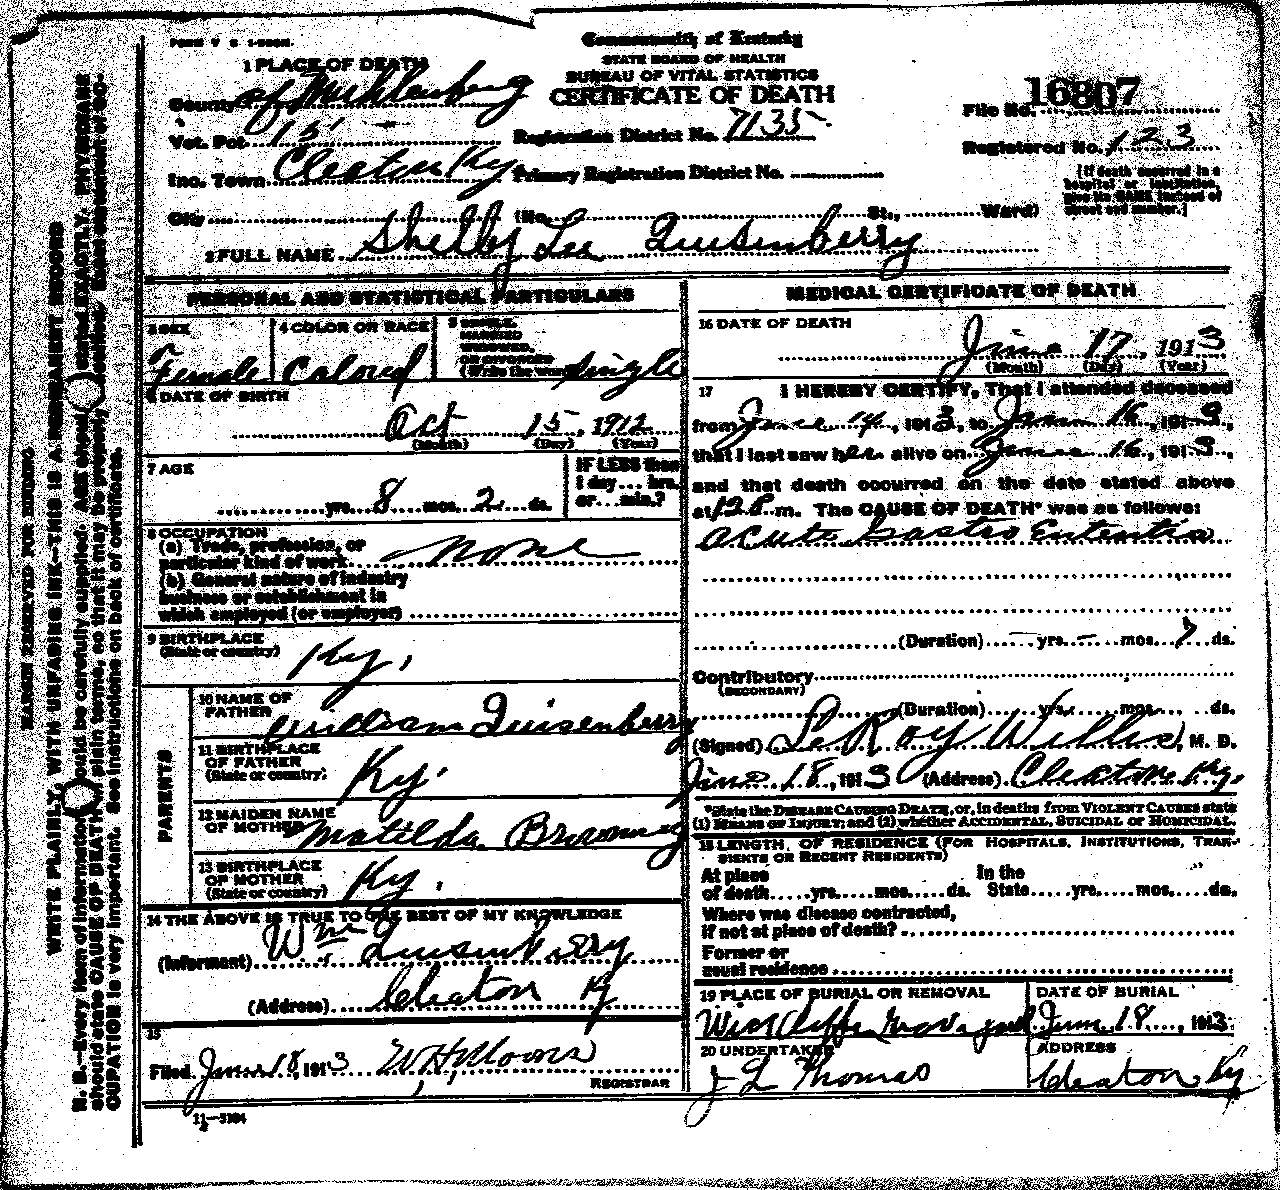 FORM V S 1-
Commonwealth of Kentucky
STATE BOARD OF HEALTH
BUREAU OF VITAL STATISTICS
CERTIFICATE OF DEATH
1 PLACE OF DEATH
County of Muhlenberg
Vot. Pct. 15
Registration District No. 7135
File No. 16807
Registered No. 123
Inc. Town Cleaton Ky
Primary Registration District No.
[If death occurred in a hospital or institution, give its NAME instead of street and number.]
City (No. St., Ward)
2 FULL NAME Shelby Lee Quisenberry
PERSONAL AND STATISTICAL PARTICULARS
3 SEX Female
4 COLOR OR RACE Colored
5 SINGLE, MARRIED WIDOWED, OR DIVORCED (Write the word) Single
6 DATE OF BIRTH
Oct 15, 1912
(Month) (Day) (Year)
7 AGE
yrs. 8 mos. 2 ds.
IF LESS than 1 day... hrs. or... min.?
8 OCCUPATION
(a) Trade, profession, or particular kind of work none
(b) General nature of industry business or establishment in which employed (or employer)
9 BIRTHPLACE
(State or country) Ky.
PARENTS
10 NAME OF FATHER William Quisenberry
11 BIRTHPLACE OF FATHER (State or country) Ky.
12 MAIDEN NAME OF MOTHER Matilda
13 BIRTHPLACE OF MOTHER (State or country) Ky.
14 THE ABOVE IS TRUE TO THE BEST OF MY KNOWLEDGE
(Informant) Wm Quisenberry
(Address) Cleaton Ky
15
Filed June 18, 1913 W H Moons
REGISTRAR
11—3184
MEDICAL CERTIFICATE OF DEATH
16 DATE OF DEATH
June 17, 1913
(Month) (Day) (Year)
17 I HEREBY CERTIFY, That I attended deceased
from June 14, 1913, to June 16, 1913,
that I last saw her alive on June 16, 1913,
and that death occurred on the date stated above
at 12 m. The CAUSE OF DEATH* was as follows:
acute Gastro Enteritis
(Duration) — yrs. — mos. 7 ds.
Contributory
(SECONDARY)
(Duration) yrs. mos. ds.
(Signed) LeRoy Willis, M. D.
June 18, 1913 (Address) Cleaton Ky.
*State the DISEASE CAUSING DEATH, or, in deaths from VIOLENT CAUSES state
(1) MEANS OF INJURY; and (2) whether ACCIDENTAL, SUICIDAL or HOMICIDAL.
18 LENGTH OF RESIDENCE (FOR HOSPITALS, INSTITUTIONS, TRANSIENTS OR RECENT RESIDENTS)
At place of death yrs. mos. ds. In the State yrs. mos. ds.
Where was disease contracted,
if not at place of death?
Former or
usual residence
19 PLACE OF BURIAL OR REMOVAL
West Cliff Graveyard
DATE OF BURIAL
June 18, 1913
20 UNDERTAKER
J L Thomas
ADDRESS
Cleaton Ky
MARGIN RESERVED FOR BINDING
WRITE PLAINLY, WITH UNFADING INK—THIS IS A PERMANENT RECORD
N. B.—Every item of information should be carefully supplied. AGE should be stated EXACTLY. PHYSICIANS
should state CAUSE OF DEATH in plain terms, so that it may be properly classified. Exact statement of OC-
CUPATION is very important. See instructions on back of certificate.